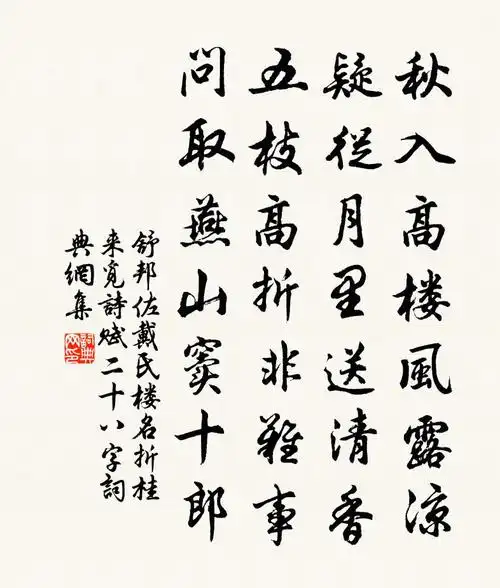 秋入高楼風露涼
疑從月里送清香
五枝高折非難事
問取燕山窦十郎
舒邦佐戴氏楼名折桂
来覓詩赋二十八字詞
典網集
詞典
网印